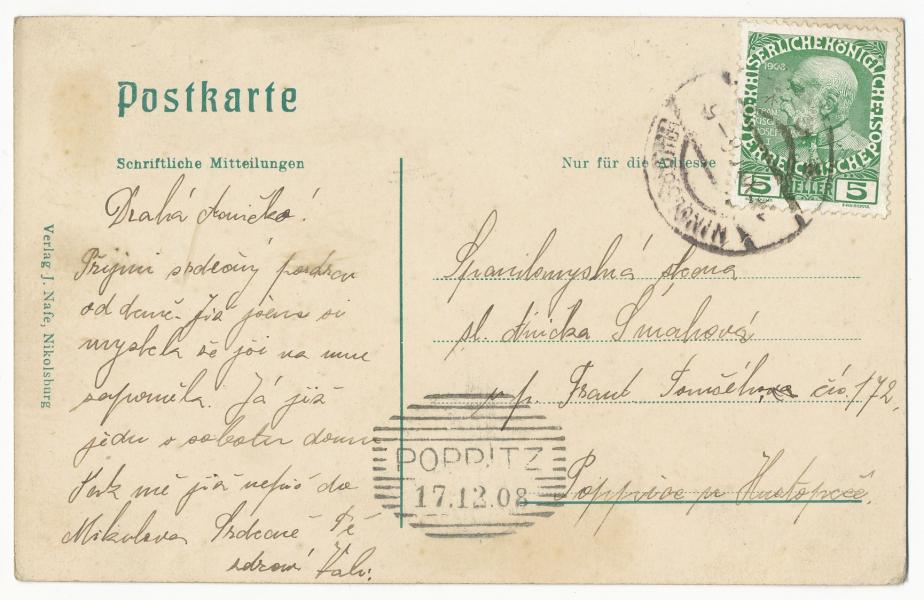 Postkarte
Schriftliche Mitteilungen
Nur für die Adresse
KAISERLICHE KÖNIGLICHE
ÖSTERREICHISCHE POST
1908
5 HELLER 5
Drahá Aničko!
Přijmi srdečný pozdrav
od Já již jsem si
myslela že jsi na mne
zapoměla. Já již
jedu v sobotu domu
Tak mě již nepiš do
Mikulova Srdečně Tě
zdraví
slečna
sl. Anička Šmahová
p. p. Frant. čís. 172.
Poppice u Hustopeče.
POPPITZ
17.12.08
Verlag J. Nafe, Nikolsburg